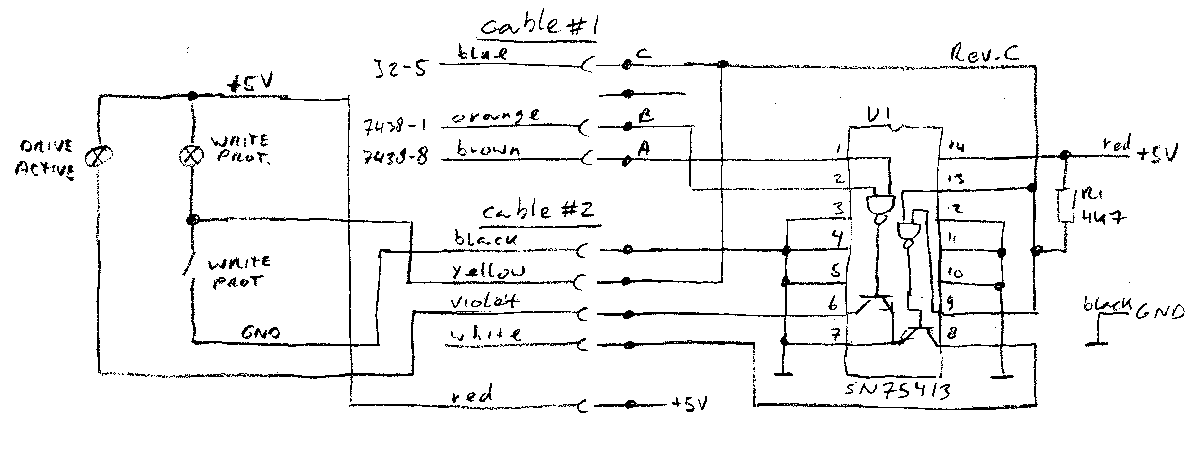 cable #1
blue
C
J2-5
Rev.C
+5V
orange
B
7438-1
U1
DRIVE
ACTIVE
WRITE
PROT.
7438-8
brown
A
1
14
red
+5V
2
13
cable #2
3
12
R1
4K7
black
4
11
WRITE
PROT
yellow
5
10
violet
6
9
black
GND
GND
white
7
8
SN75413
red
+5V